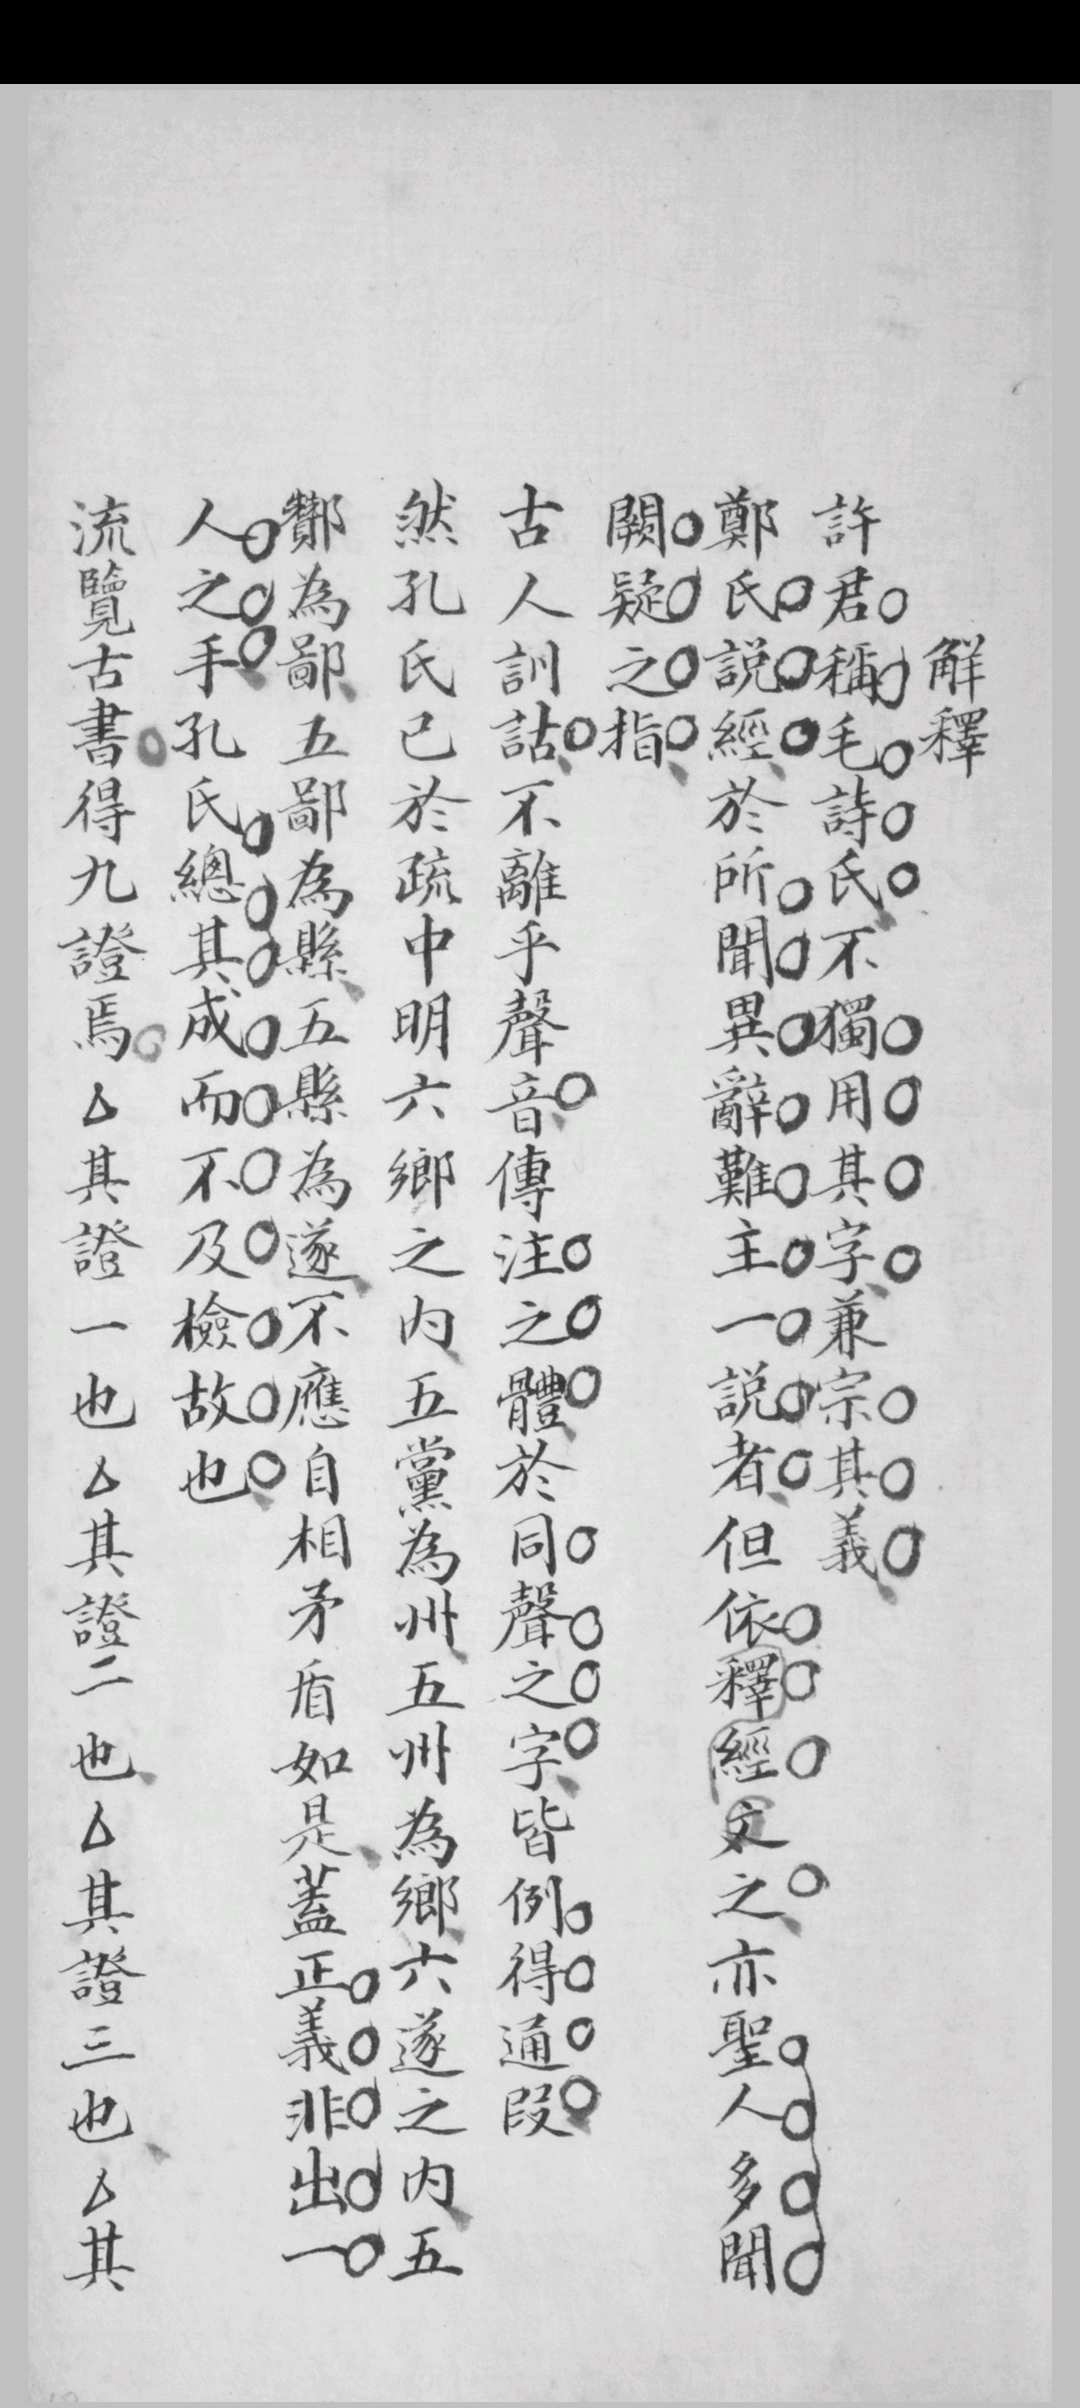 解釋
許君稱毛詩氏不獨用其字兼宗其義
鄭氏説經於所聞異辭難主一説者但依釋經文之亦聖人多聞
闕疑之指
古人訓詁不離乎聲音傳注之體於同聲之字皆例得通叚
然孔氏已於疏中明六鄉之内五黨為州五州為鄉六遂之内五
酇為鄙五鄙為縣五縣為遂不應自相矛盾如是蓋正義非出一
人之手孔氏總其成而不及檢故也
流覽古書得九證焉△其證一也△其證二也△其證三也△其